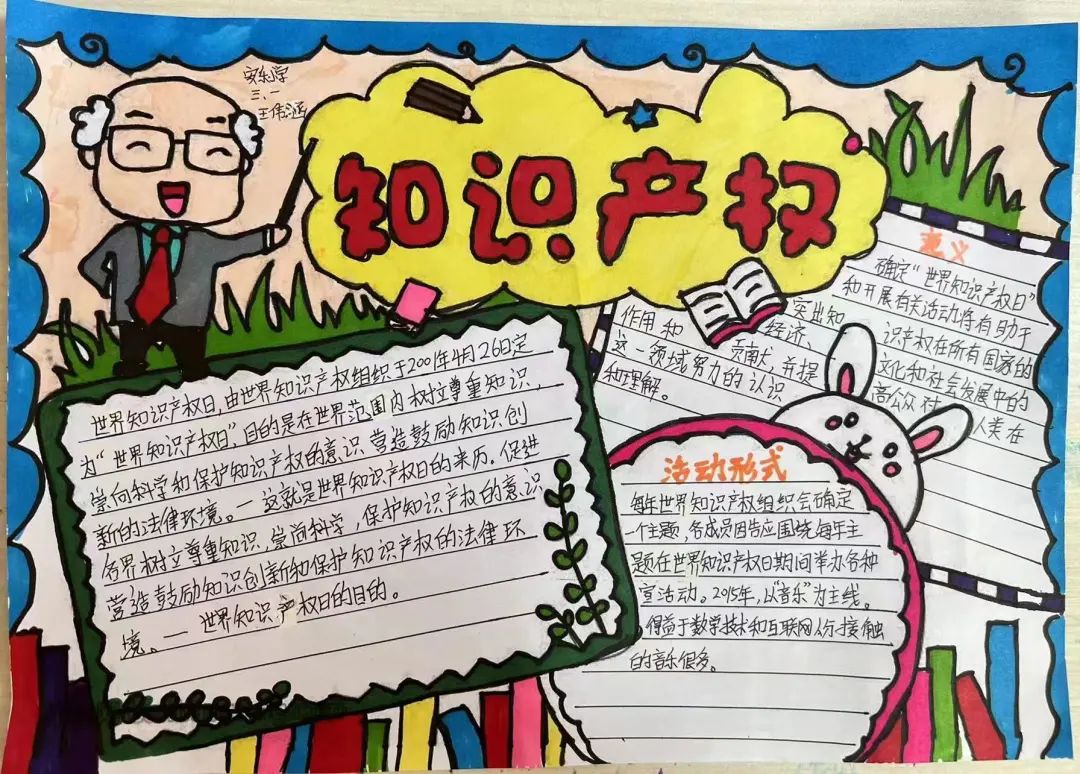 安乐学
三、一
王伟涵
知识产权
世界知识产权日,由世界知识产权组织于2001年4月26日定
为“世界知识产权日”,目的是在世界范围内树立尊重知识,
崇向科学和保护知识产权的意识 营造鼓励知识创
新的法律环境。— 这就是世界知识产权日的来历。促进
各界树立尊重知识,崇尚科学,保护知识产权的意识
营造鼓励知识创新和保护知识产权的法律环
境。— 世界知识产权日的目的。
意义
确定“世界知识产权日”
和开展有关活动将有助于
突出知识产权在所有国家的
作用和 经济、文化和社会发展中的
贡献,并提高公众对 人类在
这一领域努力的认识
和理解。
活动形式
每年世界知识产权组织会确定
一个主题,各成员国告应围绕每年主
题在世界知识产权日期间举办各种
宣活动。2015年,以“音乐”为主线。
得益于数学技术和互联网人们接触
的音乐很多。